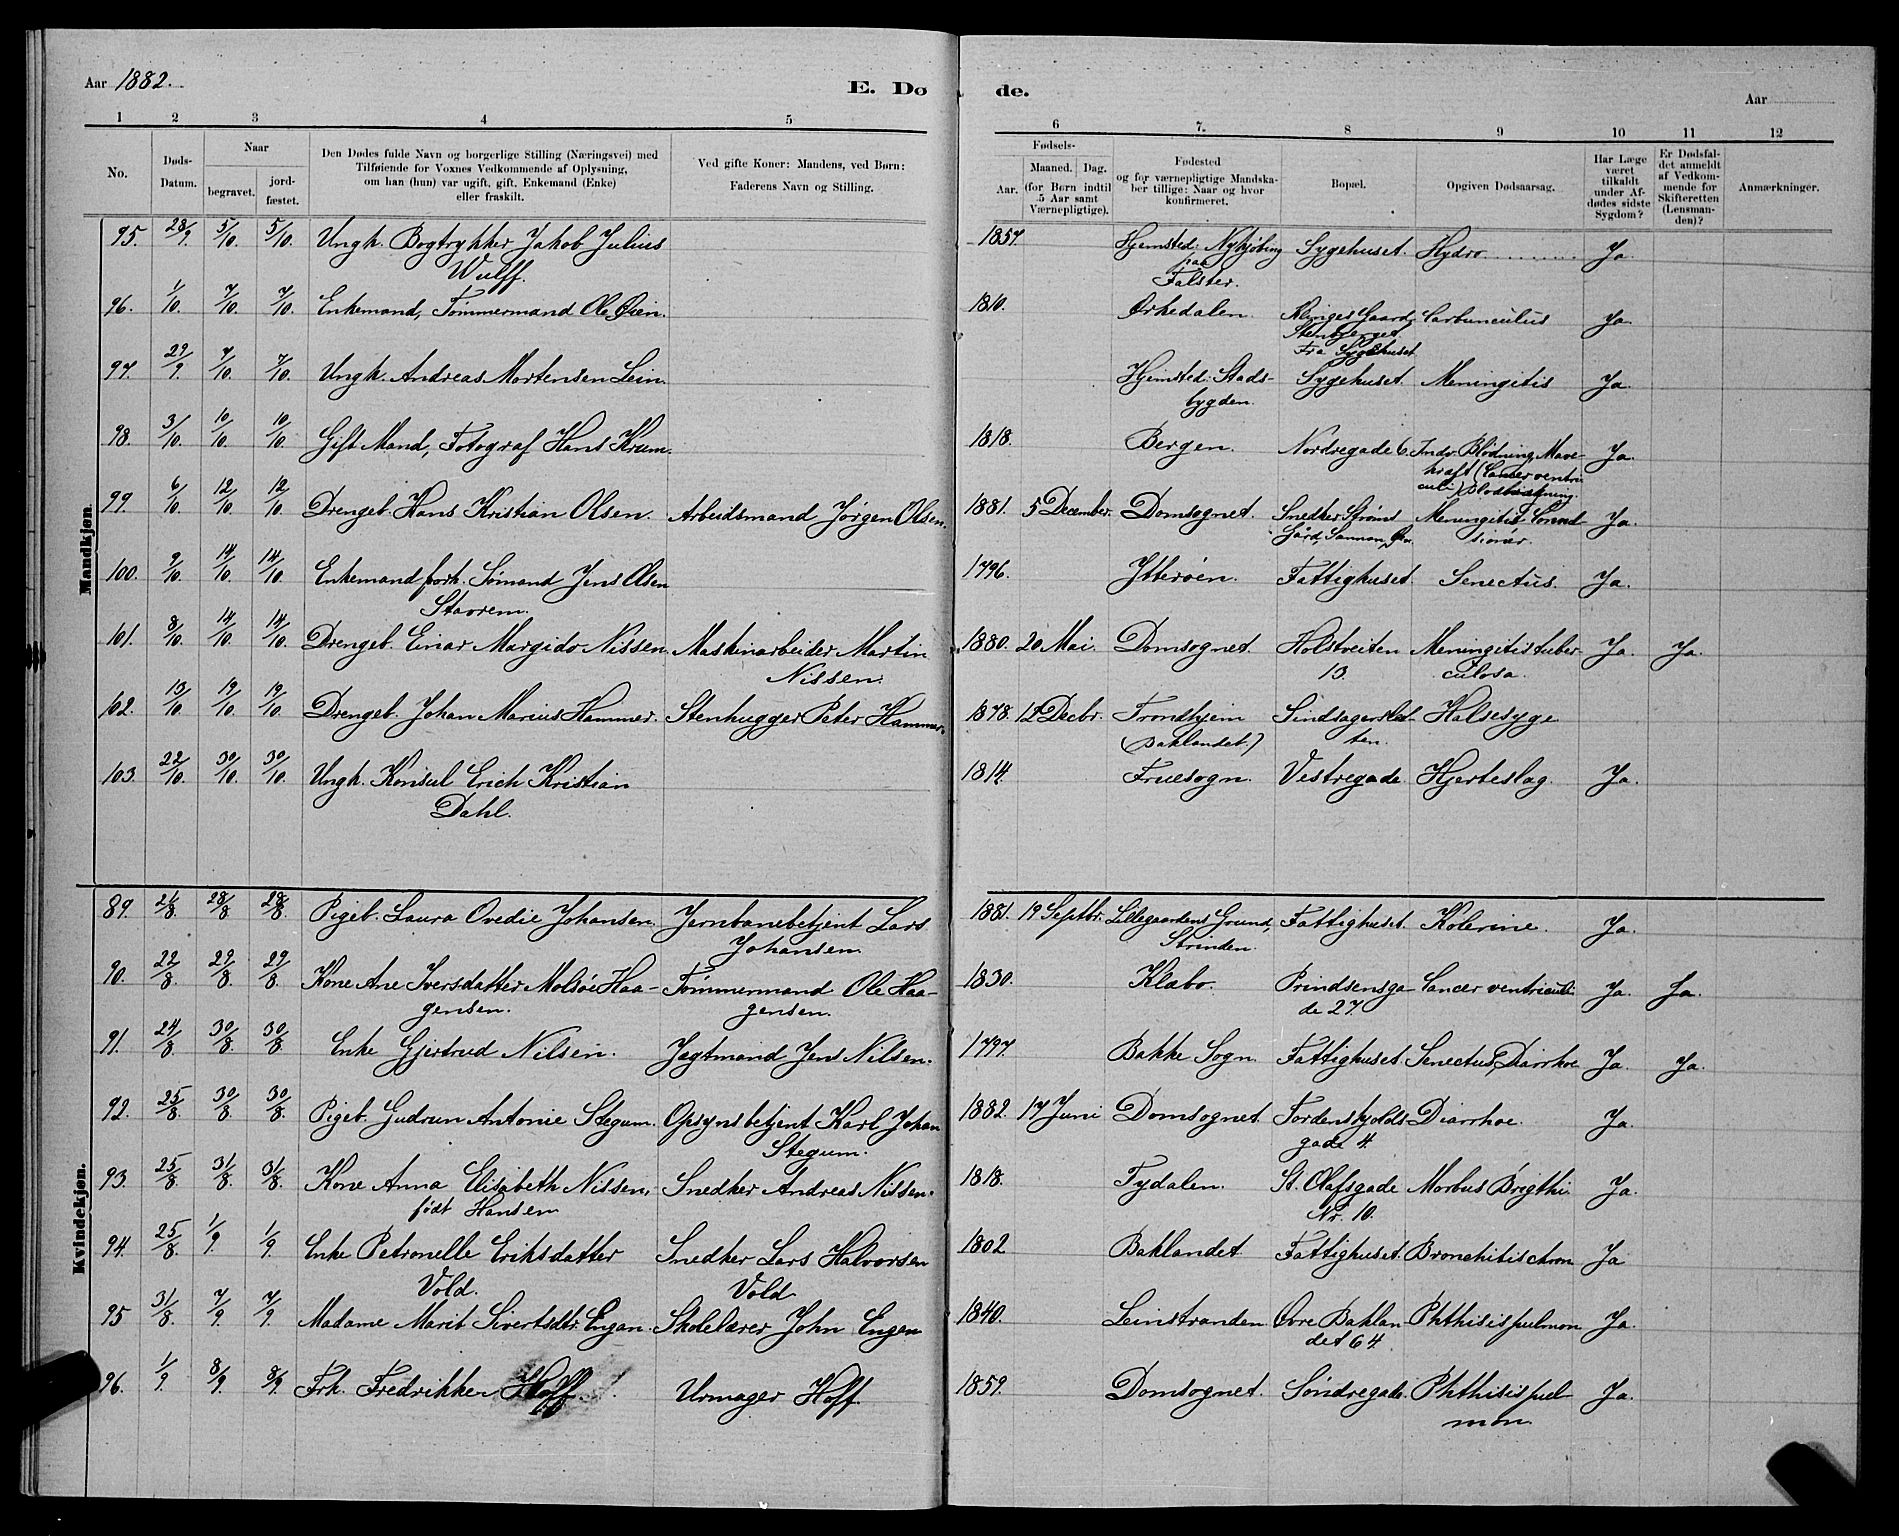 Aar 1882.
E. Dø
de.
Aar
1 2 3 4 5 6 7. 8 9 10 11 12
No.
Døds-
Datum.
Naar
begravet.
jord-
fæstet.
Den Dødes fulde Navn og borgerlige Stilling (Næringsvei) med
Tilføiende for Voxnes Vedkommende af Oplysning,
om han (hun) var ugift, gift, Enkemand (Enke)
eller fraskilt.
Ved gifte Koner: Mandens, ved Børn:
Faderens Navn og Stilling.
Fødsels-
Aar.
Maaned. Dag.
(for Børn indtil
5 Aar samt
Værnepligtige).
Fødested
og for værnepligtige Mandska-
ber tillige: Naar og hvor
konfirmeret.
Bopæl.
Opgiven Dødsaarsag.
Har Læge
været
tilkaldt
under Af-
dødes sidste
Sygdom?
Er Dødsfal-
det anmeldt
af Vedkom-
mende for
Skifteretten
(Lensman-
den)?
Anmærkninger.
Mandkjøn.
95. 28/9. 5/10. 5/10. Ungk. Bogtrykker Jakob Julius 1857. Hjemsted: Nykjøbing Sygehuset. Hydro Ja.
Wulff. paa
Falster.
96. 1/10. 7/10. 7/10. Enkemand, Tømmermand Ole Øien. 1810. Ørkedalen. Klinges Gaard, Carbunculus Ja.
Stenberget
Fra Sygehuset
97. 29/9. 7/10. 7/10. Ungk. Andreas Mortensen Lein. Hjemsted: Stads- Sygehuset. Meningitis Ja.
bygden.
98. 3/10. 10/10. 10/10. Gift Mand, Fotograf Hans Krum. 1818. Bergen. Nordregade 6. Indv. Blødning, Mave- Ja.
kræft (Cancer ventri
culi)
99. 6/10. 12/10. 12/10. Drengeb. Hans Kristian Olsen. Arbeidsmand Jørgen Olsen. 1881. 5 December. Domsognet. Snedker Strøms Meningitis Ja.
Gård,
100. 9/10. 14/10. 14/10. Enkemand forh. Sømand Jens Olsen 1796. Ytterøen. Fattighuset. Senectus. Ja.
Stavrem.
101. 8/10. 14/10. 14/10. Drengeb. Einar Margido Nissen. Maskinarbeider Martin 1880. 20 Mai. Domsognet. Holstveiten Meningitis tuber- Ja Ja.
Nissen. 13. culosa.
102. 13/10. 19/10. 19/10. Drengeb. Johan Marius Hammer. Stenhugger Peter Hammer. 1878. 12 Decbr. Trondhjem Halsesyge
(Baklandet.) ten.
103. 22/10. 30/10. 30/10. Ungk. Konsul Erich Kristian 1814. Fruesogn. Vestregade. Hjerteslag. Ja.
Dahl.
Kvindekjøn.
89. 21/8. 28/8. 28/8. Pigeb. Laura Ovedie Johansen. Jernbanebetjent Lars 1881. 19 Septbr. Lillegaardens Grund, Fattighuset. Kolerine. Ja.
Johansen. Strinden.
90. 22/8. 29/8. 29/8. Kone Ane Iversdatter Molsøe Haa- Tømmermand Ole Haa- 1830. Klæbo. Prindsensga Cancer ventriculi Ja. Ja.
gensen. gensen. de 27.
91. 24/8. 30/8. 30/8. Enke Gjertrud Nilsen. Jagtmand Jens Nilsen. 1797. Bakke Sogn. Fattighuset. Senectus, Diarrhoe Ja. Ja.
92. 25/8. 30/8. 30/8. Pigeb. Gudrun Antonie Stegum. Opsynsbetjent Karl Johan 1882. 17 Juni Domsognet. Tordenskjolds Diarrhoe. Ja.
Stegum. gade 4.
93. 25/8. 31/8. 31/8. Kone Anna Elisabeth Nissen, Snedker Andreas Nissen. 1818. Tydalen. St. Olafsgade Morbus Brigthi. Ja.
født Hansen Nr. 10.
94. 25/8. 1/9. 1/9. Enke Petronelle Eriksdatter Snedker Lars Halvorsen 1802 Baklandet. Fattighuset. Bronchitis chron Ja
Vold. Vold.
95 31/8. 7/9. 7/9. Madame Marit Sivertsdtr. Engan. Skolelærer John Engen 1840. Leinstranden Øvre Baklan Phthisis pulmon Ja.
det 64.
96. 1/9. 8/9. 8/9. Frk. Fredrikke Hoff. Urmager Hoff. 1859. Domsognet. Søndregade. Phthisis pul Ja.
mon.